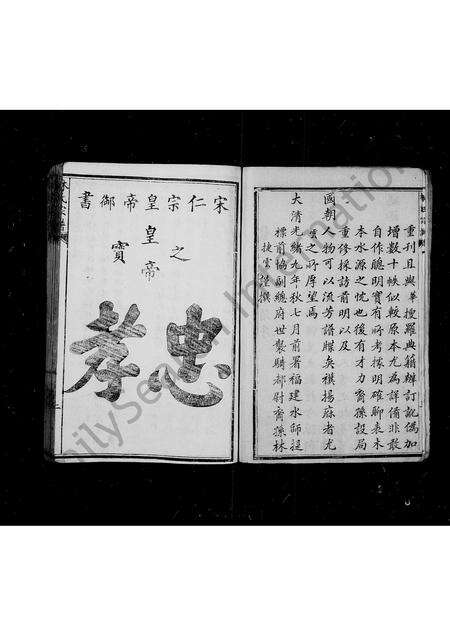 重刊且與華搜羅典籍辦訂訛偽加
增數十帙似較原本尤為詳備非敢
自作聰明實有所考據明確聊表木
本水源之忱也後有才力裔孫設局
重修採訪前明以及
國朝人物可以流芳譜牒矣撰揚麻者尤
雲之所厚望焉
大清光緒九年秋七月前署福建水師提
標前協副總府世襲騎都尉裔孫林
捷雲謹撰
宋仁宗皇帝御書
忠孝
皇帝
之
寶
FamilySearch International